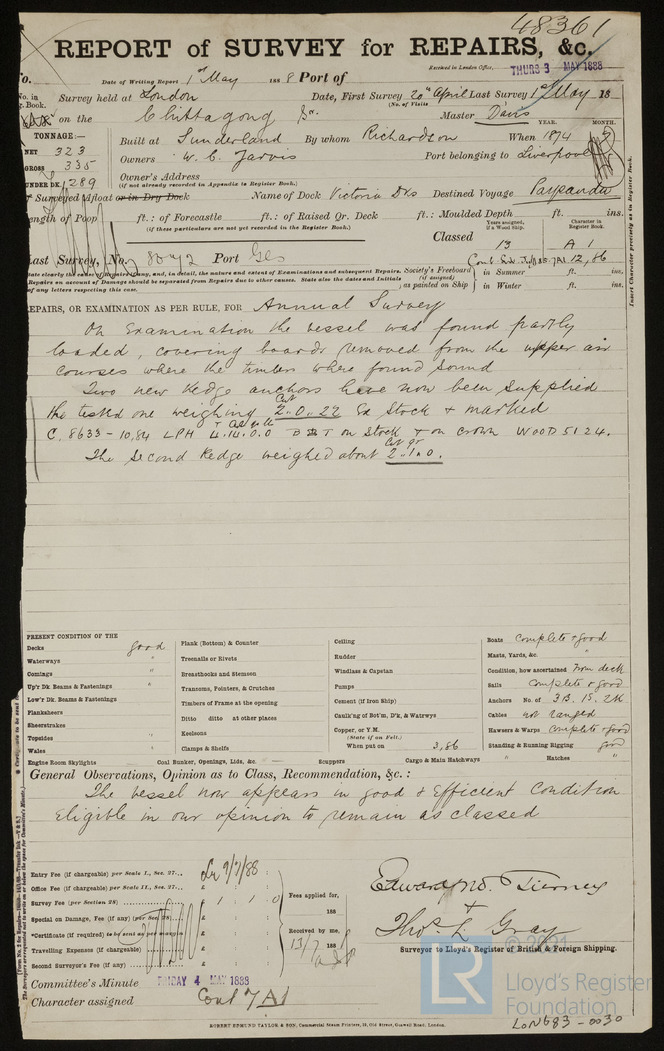 48361
REPORT of SURVEY for REPAIRS, &c.
Received in London Office, THURS 3 MAY 1888
No. Date of Writing Report 1st May 1888 Port of
No. in Survey held at London Date, First Survey 20th April Last Survey 1st May 18
g. Book. (No. of Visits
on the Chittagong Master Davis
TONNAGE:— Built at Sunderland By whom Richardson When 1874 YEAR. MONTH.
NET 323 Owners W. C. Jarvis Port belonging to Liverpool
GROSS 335 Owner's Address
(if not already recorded in Appendix to Register Book.)
UNDER DK. 289
Surveyed Afloat or in Dry Dock Name of Dock Victoria Dks Destined Voyage
Length of Poop ft.: of Forecastle ft.: of Raised Qr. Deck ft.: Moulded Depth ft. ins.
(if these particulars are not yet recorded in the Register Book.)
Years assigned, if a Wood Ship. Character in Register Book.
Classed 13 A 1
Last Survey, No. 8042 Port Gls 7A1 12,86
State clearly the cause of Repairs if any, and, in detail, the nature and extent of Examinations and subsequent Repairs.
Repairs on account of Damage should be separated from Repairs due to other causes. State also the dates and Initials
of any letters respecting this case.
Society's Freeboard (if assigned) as painted on Ship in Summer ft. ins.
in Winter ft. ins.
Insert Character precisely as in Register Book.
REPAIRS, OR EXAMINATION AS PER RULE, FOR Annual Survey
On Examination the vessel was found partly
loaded, covering boards removed from the upper air
courses where the timbers where found sound
Two new Kedge anchors have now been supplied
the tested one weighing Cwt 2.0.22 Ex Stock + marked
C. 8633 - 10,84 LPH 4.14.0.0 on Stock + on crown WOOD 5124.
The Second Kedge weighed about Cwt qr 2.1.0.
PRESENT CONDITION OF THE
Decks good
Waterways "
Comings "
Up'r Dk. Beams & Fastenings "
Low'r Dk. Beams & Fastenings
Planksheers
Sheerstrakes
Topsides "
Wales "
Engine Room Skylights
Plank (Bottom) & Counter
Treenails or Rivets
Breasthooks and Stemson
Transoms, Pointers, & Crutches
Timbers of Frame at the opening
Ditto ditto at other places
Keelsons
Clamps & Shelfs
Coal Bunker, Openings, Lids, &c.
Ceiling
Rudder
Windlass & Capstan
Pumps
Cement (if Iron Ship)
Caulk'ng of Bot'm, D'k, & Watrwys
Copper, or Y.M.
(State if on Felt.)
When put on 3,86
Scuppers
Cargo & Main Hatchways "
Boats complete & good
Masts, Yards, &c. "
Condition, how ascertained From deck
Sails complete & good
Anchors No. of 3B. 1S. 2K
Cables not ranged
Hawsers & Warps complete & good
Standing & Running Rigging good
Hatches "
General Observations, Opinion as to Class, Recommendation, &c.:
The vessel now appears in good & Efficient Condition
Eligible in our opinion to remain as classed
Entry Fee (if chargeable) per Scale I., Sec. 27...
Office Fee (if chargeable) per Scale II., Sec. 27...
Survey Fee (per Section 28) £ 1 : 1 : 0
Special on Damage, Fee (if any) (per Sec. 28) £ : :
*Certificate (if required) to be sent as per margin £ : :
Travelling Expenses (if chargeable) £ : :
Second Surveyor's Fee (if any) £ : :
Fees applied for,
188
Received by me,
13/7 188
Edward M. Tierney
+
Thos. L. Gray
Surveyor to Lloyd's Register of British & Foreign Shipping.
Committee's Minute FRIDAY 4 MAY 1888
Character assigned Cont 7A1
ROBERT EDMUND TAYLOR & SON, Commercial Steam Printers, 19, Old Street, Goswell Road, London.
© 2021
LR
Lloyd's Register
Foundation
LON683-0030